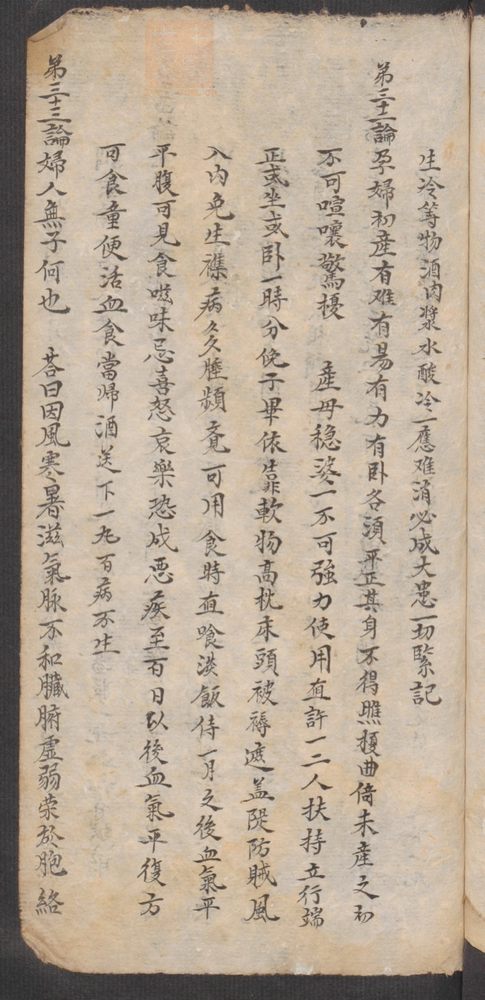 生冷等物酒肉漿水酸冷一應难消必成大患一切緊記
第三十二論孕婦初產有难有易有力有卧各須平正其身不得㬢擾曲倚未產之初
不可喧嚷驚擾　產母穏婆一不可強力使用直許一二人扶持立行端
正或坐或卧一時分俛子畢依靠軟物高枕床頭被褥遮盖隄防賊風
入內免生襍病久久睡頻竟可用食時直喰淡飯待一月之後血氣平
平腹可見食滋味忌喜怒哀樂恐成惡疾至百日以後血氣平復方
可食童便活血食當歸酒送下一丸百病不生
第三十三論婦人無子何也　荅曰因風寒暑滋氣脉不和臟腑虛弱荣於胞絡